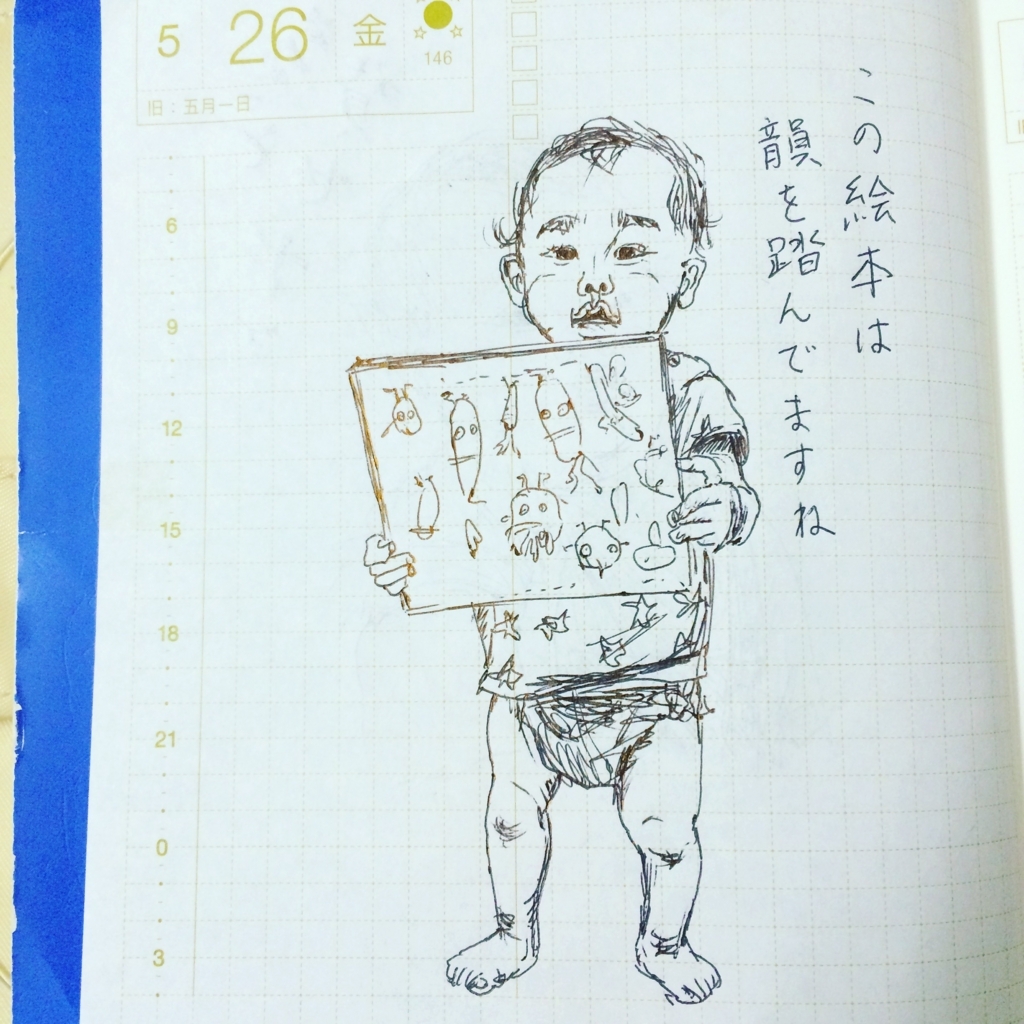 5 26 金
146
旧：五月一日
この絵本は
韻を踏んでますね
6
9
12
15
18
21
0
3